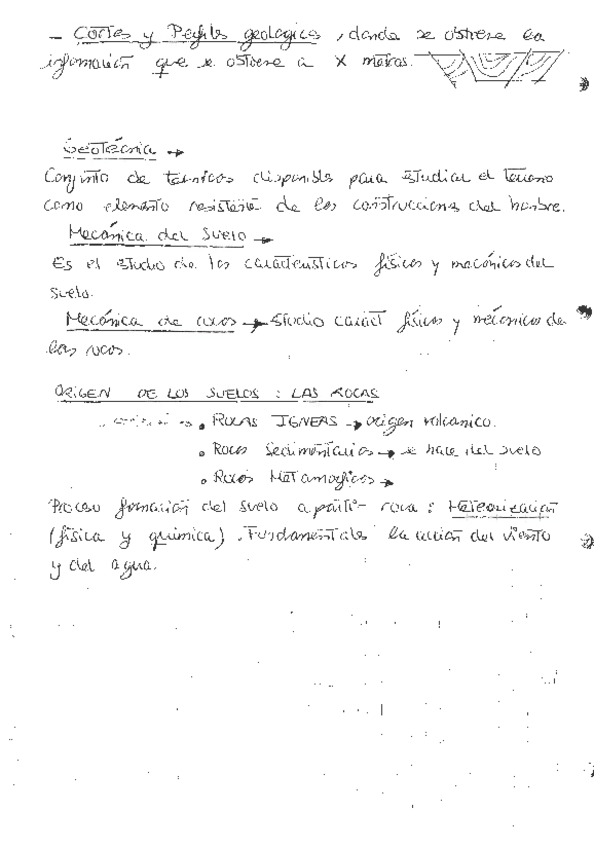 - Cortes y Perfiles geologicos, donde se observa la
información que se observa a X metros.
Geotécnia →
Conjunto de técnicas disponibles para estudiar el terreno
como elemento resistente de las construcciones del hombre.
Mecánica del Suelo →
Es el estudio de las caracteristicas físicas y mecánicas del
suelo.
Mecánica de rocas → Estudio caract físicas y mecánicas de
las rocas.
ORIGEN DE LOS SUELOS : LAS ROCAS
• ROCAS IGNEAS → origen volcanico.
• Rocas Sedimentarias → se hace del suelo
• Rocas Metamorficas →
Proceso formación del suelo a partir roca : Meteorización
(física y química). Fundamentales la acción del viento
y del agua.